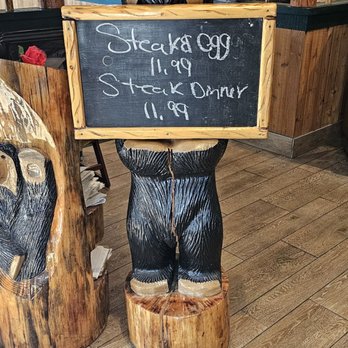 Steak & egg
11.99
Steak Dinner
11.99